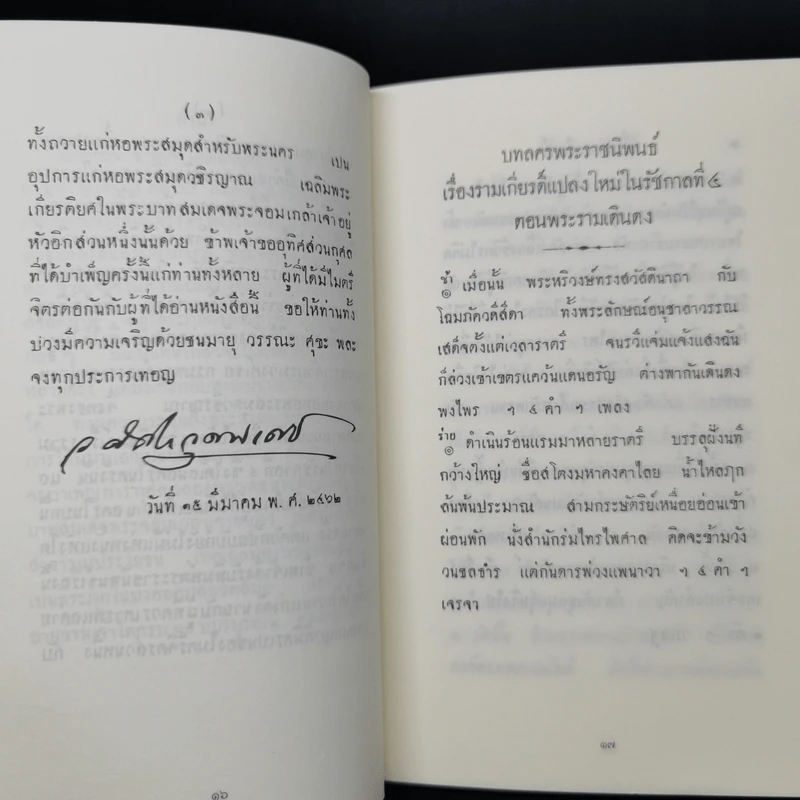 (๓)
ทั้งถวายแก่หอพระสมุดสำหรับพระนคร เปน
อุปการแก่หอพระสมุดวชิรญาณ เฉลิมพระ
เกียรติยศในพระบาทสมเดจพระจอมเกล้าเจ้าอยู่
หัวอิกส่วนหนึ่งนั้นด้วย ข้าพเจ้าขออุทิศส่วนกุศล
ที่ได้บำเพ็ญครั้งนี้แก่ท่านทั้งหลาย ผู้ที่ได้มีไมตรี
จิตรต่อกันกับผู้ที่ได้อ่านหนังสือนี้ ขอให้ท่านทั้ง
ปวงมีความเจริญด้วยชนมายุ วรรณะ ศุขะ พละ
จงทุกประการเทอญ
วันที่ ๑๕ มีนาคม พ. ศ. ๒๔๖๒
๑๖
บทลครพระราชนิพนธ์
เรื่องรามเกียรติ์แปลงใหม่ในรัชกาลที่ ๔
ตอนพระรามเดินดง
ช้า
๑ เมื่อนั้น พระหริวงษ์ทรงสวัสดินาถา กับ
โฉมภัควดีสีดา ทั้งพระลักษณ์อนุชาลาวรรณ
เสด็จตั้งแต่เวลาราตรี จนรวีแจ่มแจ้งแสงฉัน
ก็ล่วงเข้าเขตรแคว้นแดนอรัญ ต่างพากันเดินดง
พงไพร ฯ ๔ คำ ฯ เพลง
ร่าย
๑ ดำเนินร้อนแรมมาหลายราตรี บรรลุฝั่งนที
กว้างใหญ่ ชื่อสโตงมหาคงคาไลย น้ำไหลฦก
ล้นพ้นประมาณ สามกระษัตริย์เหนื่อยอ่อนเข้า
ผ่อนพัก นั่งสำนักร่มไทรไพศาล คิดจะข้ามวัง
วนชลธาร แต่กันดารพ่วงแพนาวา ฯ ๔ คำ ฯ
เจรจา
๑๗